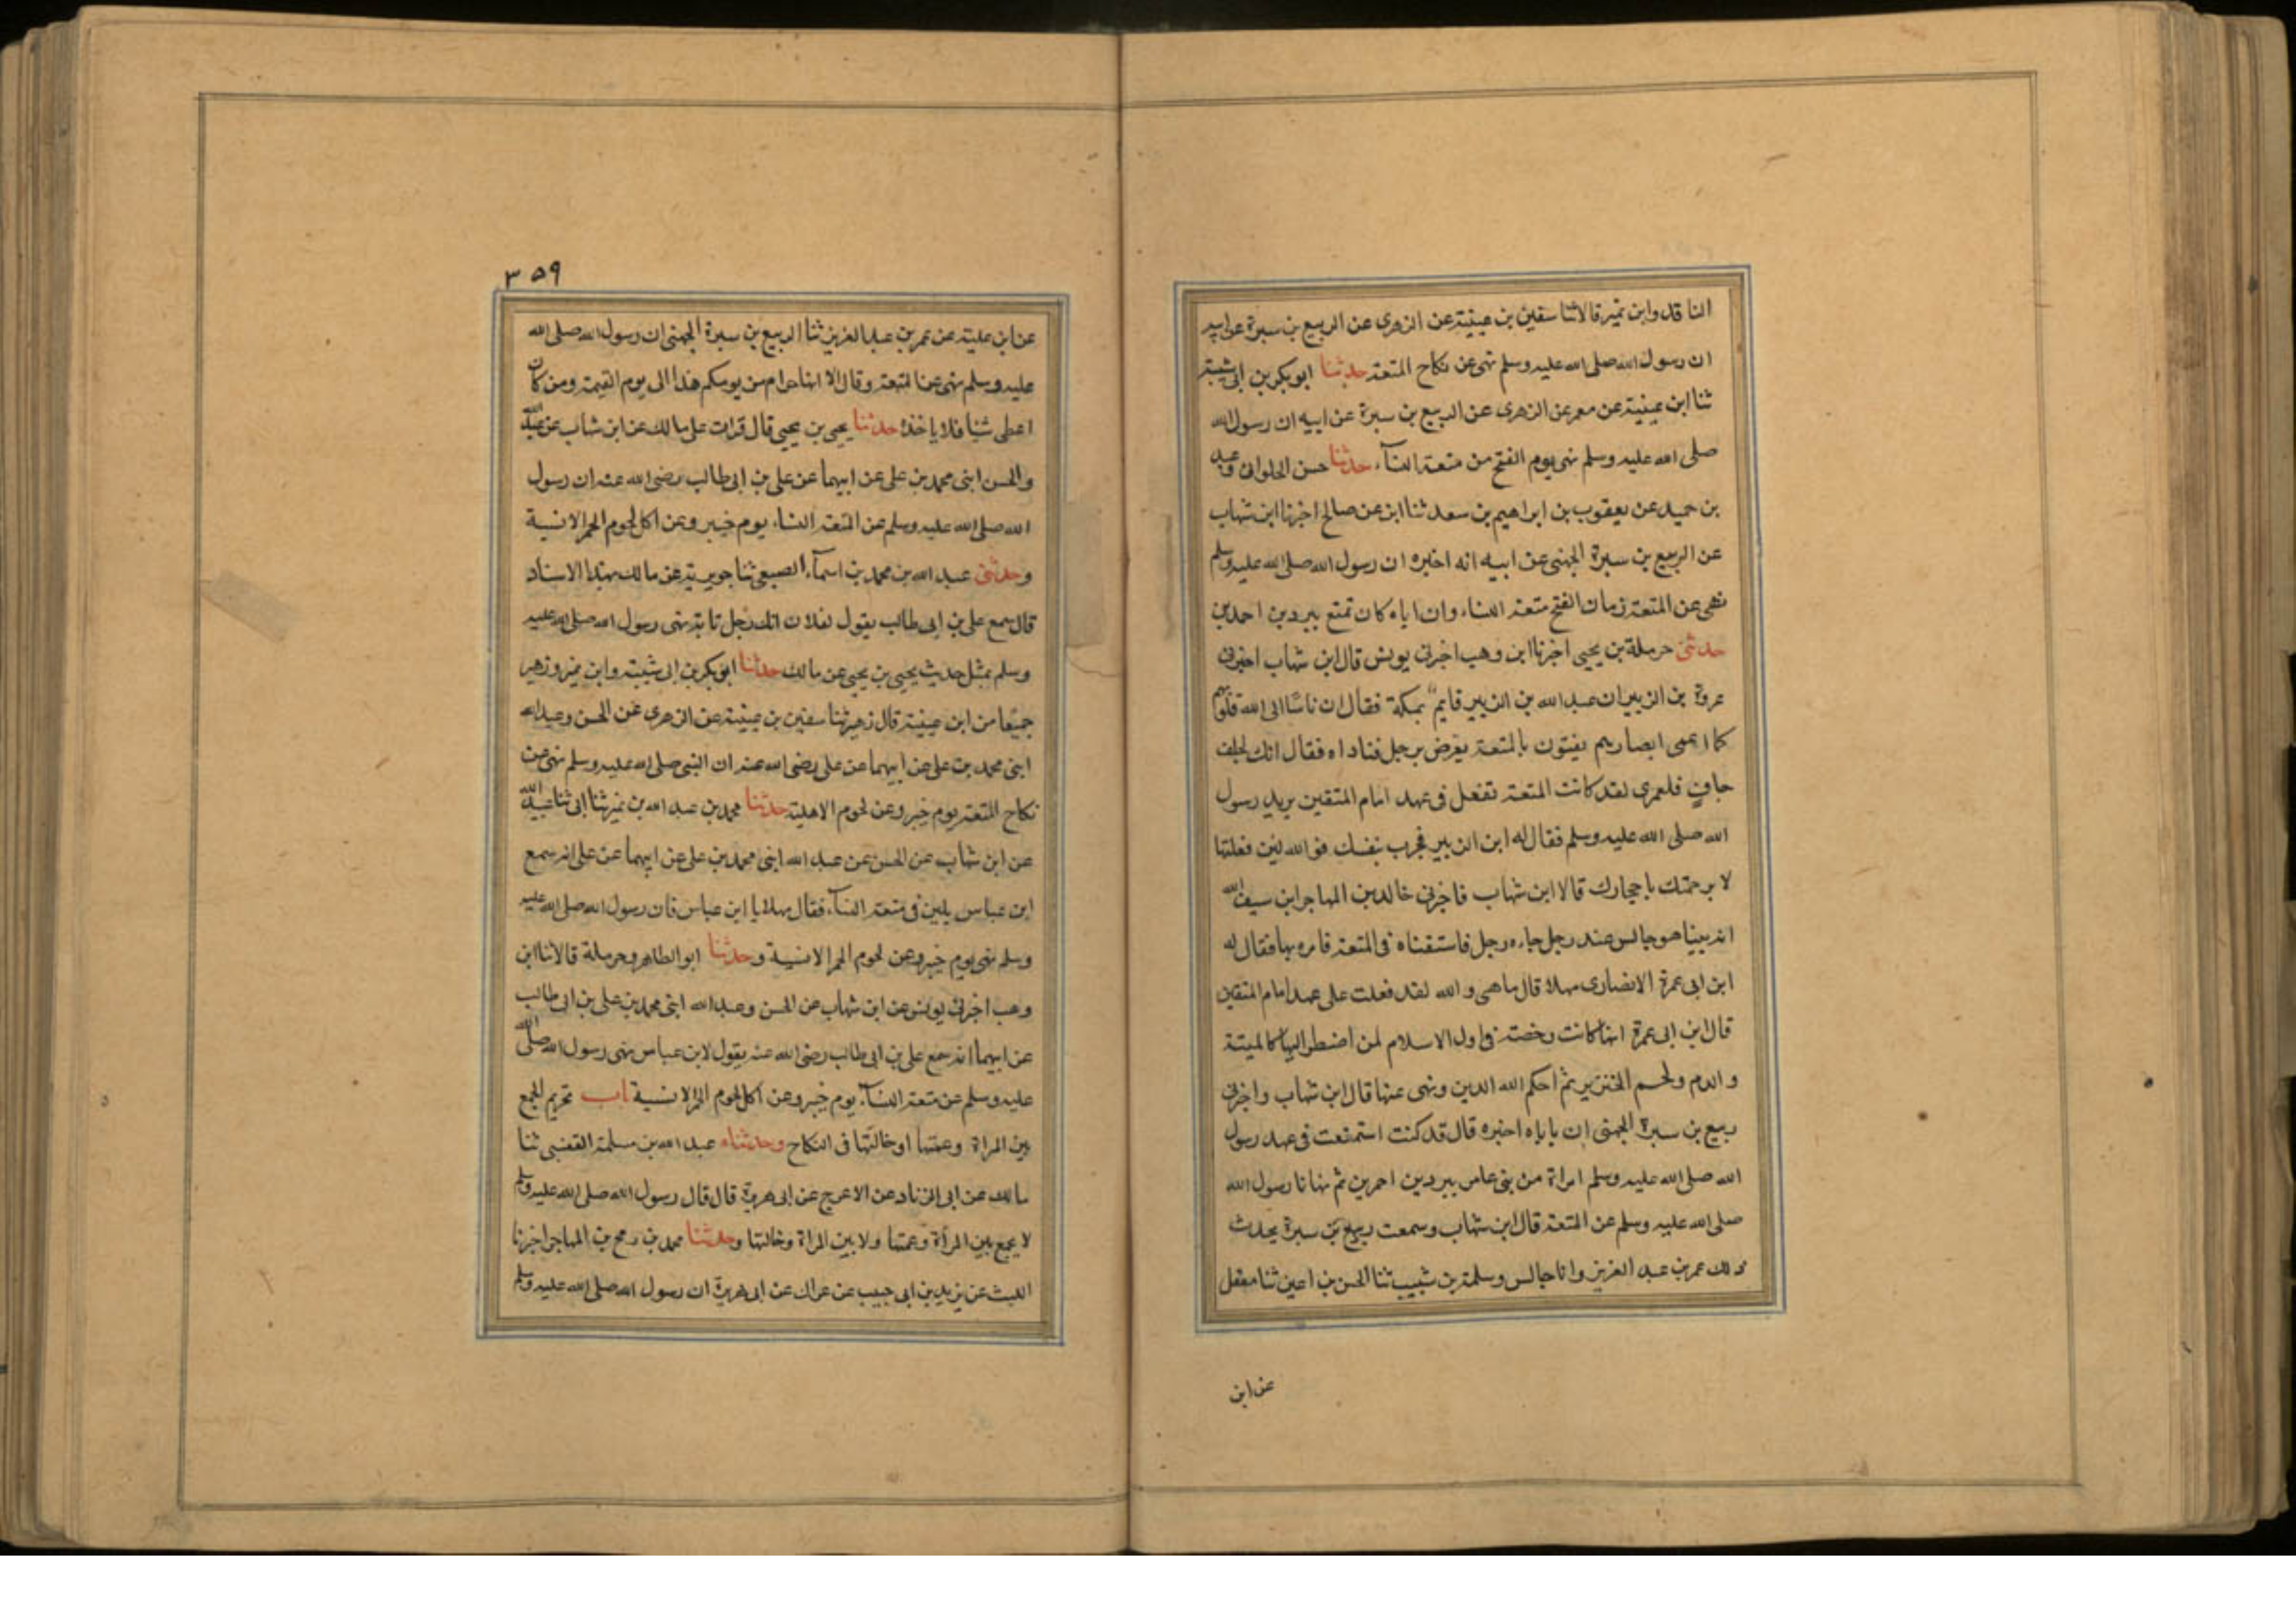 الناقد وابن نمير قالا ثنا سفين بن عيينة عن الزهرى عن الربيع بن سبرة عن ابيه
ان رسول الله صلى الله عليه وسلم نهى عن نكاح المتعة حدثنا ابو بكر بن ابى شيبة
ثنا ابن عيينة عن معمر عن الزهرى عن الربيع بن سبرة عن ابيه ان رسول الله
صلى الله عليه وسلم نهى يوم الفتح من متعة النسآء حدثنا حسن الحلوانى وعبد
بن حميد عن يعقوب بن ابراهيم بن سعد ثنا ابى عن صالح اخبرنا ابن شهاب
عن الربيع بن سبرة الجهنى عن ابيه انه اخبره ان رسول الله صلى الله عليه وسلم
نهى عن المتعة زمان الفتح متعة النساء وان اباه كان تمتع ببردين احمرين
حدثنى حرملة بن يحيى اخبرنا ابن وهب اخبرنى يونس قال ابن شهاب اخبرنى
عروة بن الزبير ان عبد الله بن الزبير قايم بمكة فقال ان ناسا اعمى الله قلوبهم
كما اعمى ابصارهم يفتون بالمتعة يعرض برجل فناداه فقال انك لجلف
جاف فلعمرى لقد كانت المتعة تفعل فى عهد امام المتقين يريد رسول
الله صلى الله عليه وسلم فقال له ابن الزبير فجرب بنفسك فوالله لئن فعلتها
لا برجمتك باحجارك قالا ابن شهاب فاخبرنى خالد بن المهاجر ابن سيف الله
انه بينا هو جالس عند رجل جاءه رجل فاستفتاه فى المتعة فامره بها فقال له
ابن ابى عمرة الانصارى مهلا قال ماهى والله لقد فعلت على عهد امام المتقين
قال ابن ابى عمرة انها كانت رخصة فى اول الاسلام لمن اضطر اليها كالميتة
والدم ولحم الخنزير ثم احكم الله الدين ونهى عنها قال ابن شهاب واخبرنى
ربيع بن سبرة الجهنى ان باباه اخبره قال قد كنت استمتعت فى عهد رسول
الله صلى الله عليه وسلم امراة من بنى عامر ببردين احمرين ثم نهانا رسول الله
صلى الله عليه وسلم عن المتعة قال ابن شهاب وسمعت ربيع بن سبرة يحدث
ذلك عمر بن عبد العزيز وانا جالس وسلمة بن شبيب ثنا الحسن بن اعين ثنا معقل
عن ابن
٣٥٩
عن ابن علية عن عمر بن عبد العزيز ثنا الربيع بن سبرة الجهنى ان رسول الله صلى الله
عليه وسلم نهى عن المتعة وقال الا انها حرام من يومكم هذا الى يوم القيمة ومن كان
اعطى شيا فلا ياخذه حدثنا يحيى بن يحيى قال قرات على مالك عن ابن شهاب عن عبد الله
والحسن ابنى محمد بن على عن ابيهما عن على بن ابى طالب رضى الله عنه ان رسول
الله صلى الله عليه وسلم عن المتعة النساء يوم خيبر وعن اكل لحوم الحمر الانسية
وحدثنى عبد الله بن محمد بن اسمآء الضبعى ثنا جويرية عن مالك بهذا الاسناد
قال سمع على بن ابى طالب يقول لفلان انك رجل تايه نهى رسول الله صلى الله عليه
وسلم بمثل حديث يحيى بن يحيى عن مالك حدثنا ابو بكر بن ابى شيبة وابن نمير وزهير
جميعا من ابن عيينة قال زهير ثنا سفين بن عيينة عن الزهرى عن الحسن وعبد الله
ابنى محمد بن على عن ابيهما عن على رضى الله عنه ان النبى صلى الله عليه وسلم نهى عن
نكاح المتعة يوم خيبر وعن لحوم الاهلية حدثنا محمد بن عبد الله بن نمير ثنا ابى ثنا عبيد الله
عن ابن شهاب عن الحسن عن عبد الله ابنى محمد بن على عن ابيهما عن على انه سمع
ابن عباس يلين فى متعة النسآء فقال مهلا يا ابن عباس فان رسول الله صلى الله عليه
وسلم نهى يوم خيبر وعن لحوم الحمر الانسية وحدثنا ابو الطاهر وحرملة قالا انا ابن
وهب اخبرنى يونس عن ابن شهاب عن الحسن وعبد الله ابنى محمد بن على بن ابى طالب
عن ابيهما انه سمع على بن ابى طالب رضى الله عنه يقول لابن عباس نهى رسول الله صلى الله
عليه وسلم عن متعة النسآء يوم خيبر وعن اكل لحوم الحمر الانسية باب تحريم الجمع
بين المراة وعمتها او خالتها فى النكاح وحدثناه عبد الله بن مسلمة القعنبى ثنا
مالك عن ابى الزناد عن الاعرج عن ابى هريرة قال قال رسول الله صلى الله عليه وسلم
لا يجمع بين المرأة وعمتها ولا بين المراة وخالتها وحدثنا محمد بن رمح بن المهاجر اخبرنا
الليث عن يزيد بن ابى حبيب عن عراك عن ابى هريرة ان رسول الله صلى الله عليه وسلم